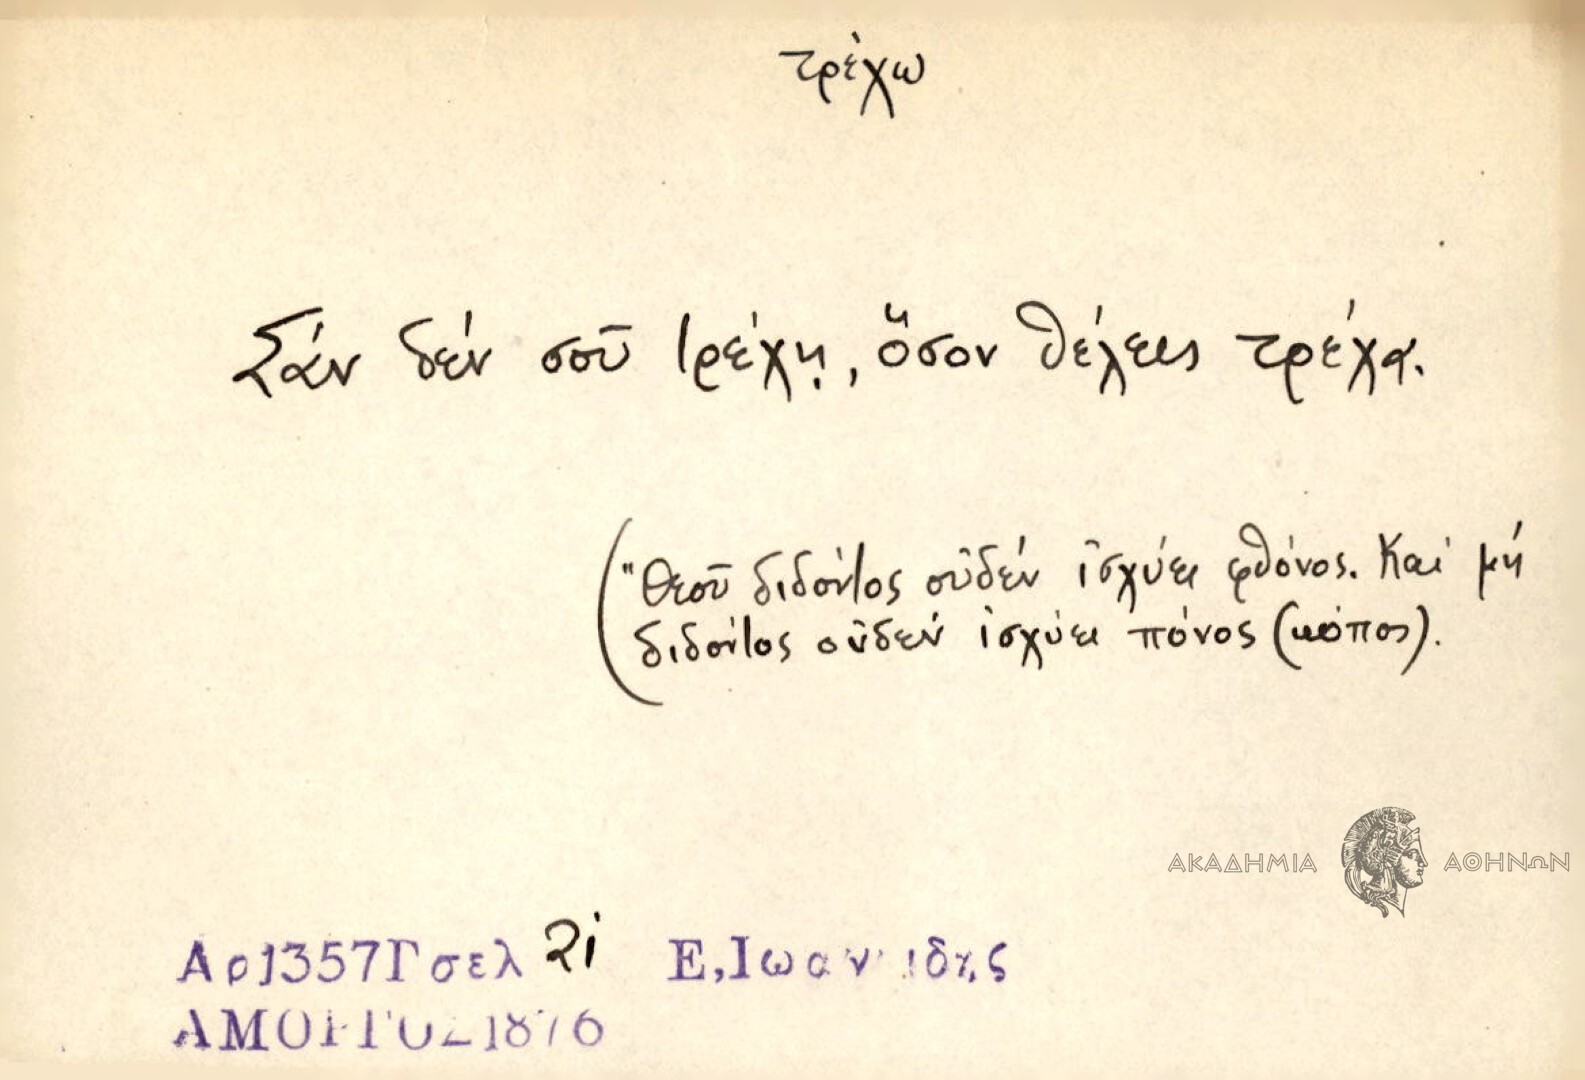 τρέχω
Σάν δέν σοῦ τρέχῃ, ὅσον θέλεις τρέχα.
("Θεοῦ διδόντος οὐδέν ἰσχύει φθόνος. Καί μή
διδόντος οὐδέν ἰσχύει πόνος (κόπος).
ΑΚΑΔΗΜΙΑ ΑΘΗΝΩΝ
Αρ1357Γσελ 21 Ε,Ιωαννιδης
ΑΜΟΡΓΟΣ1876